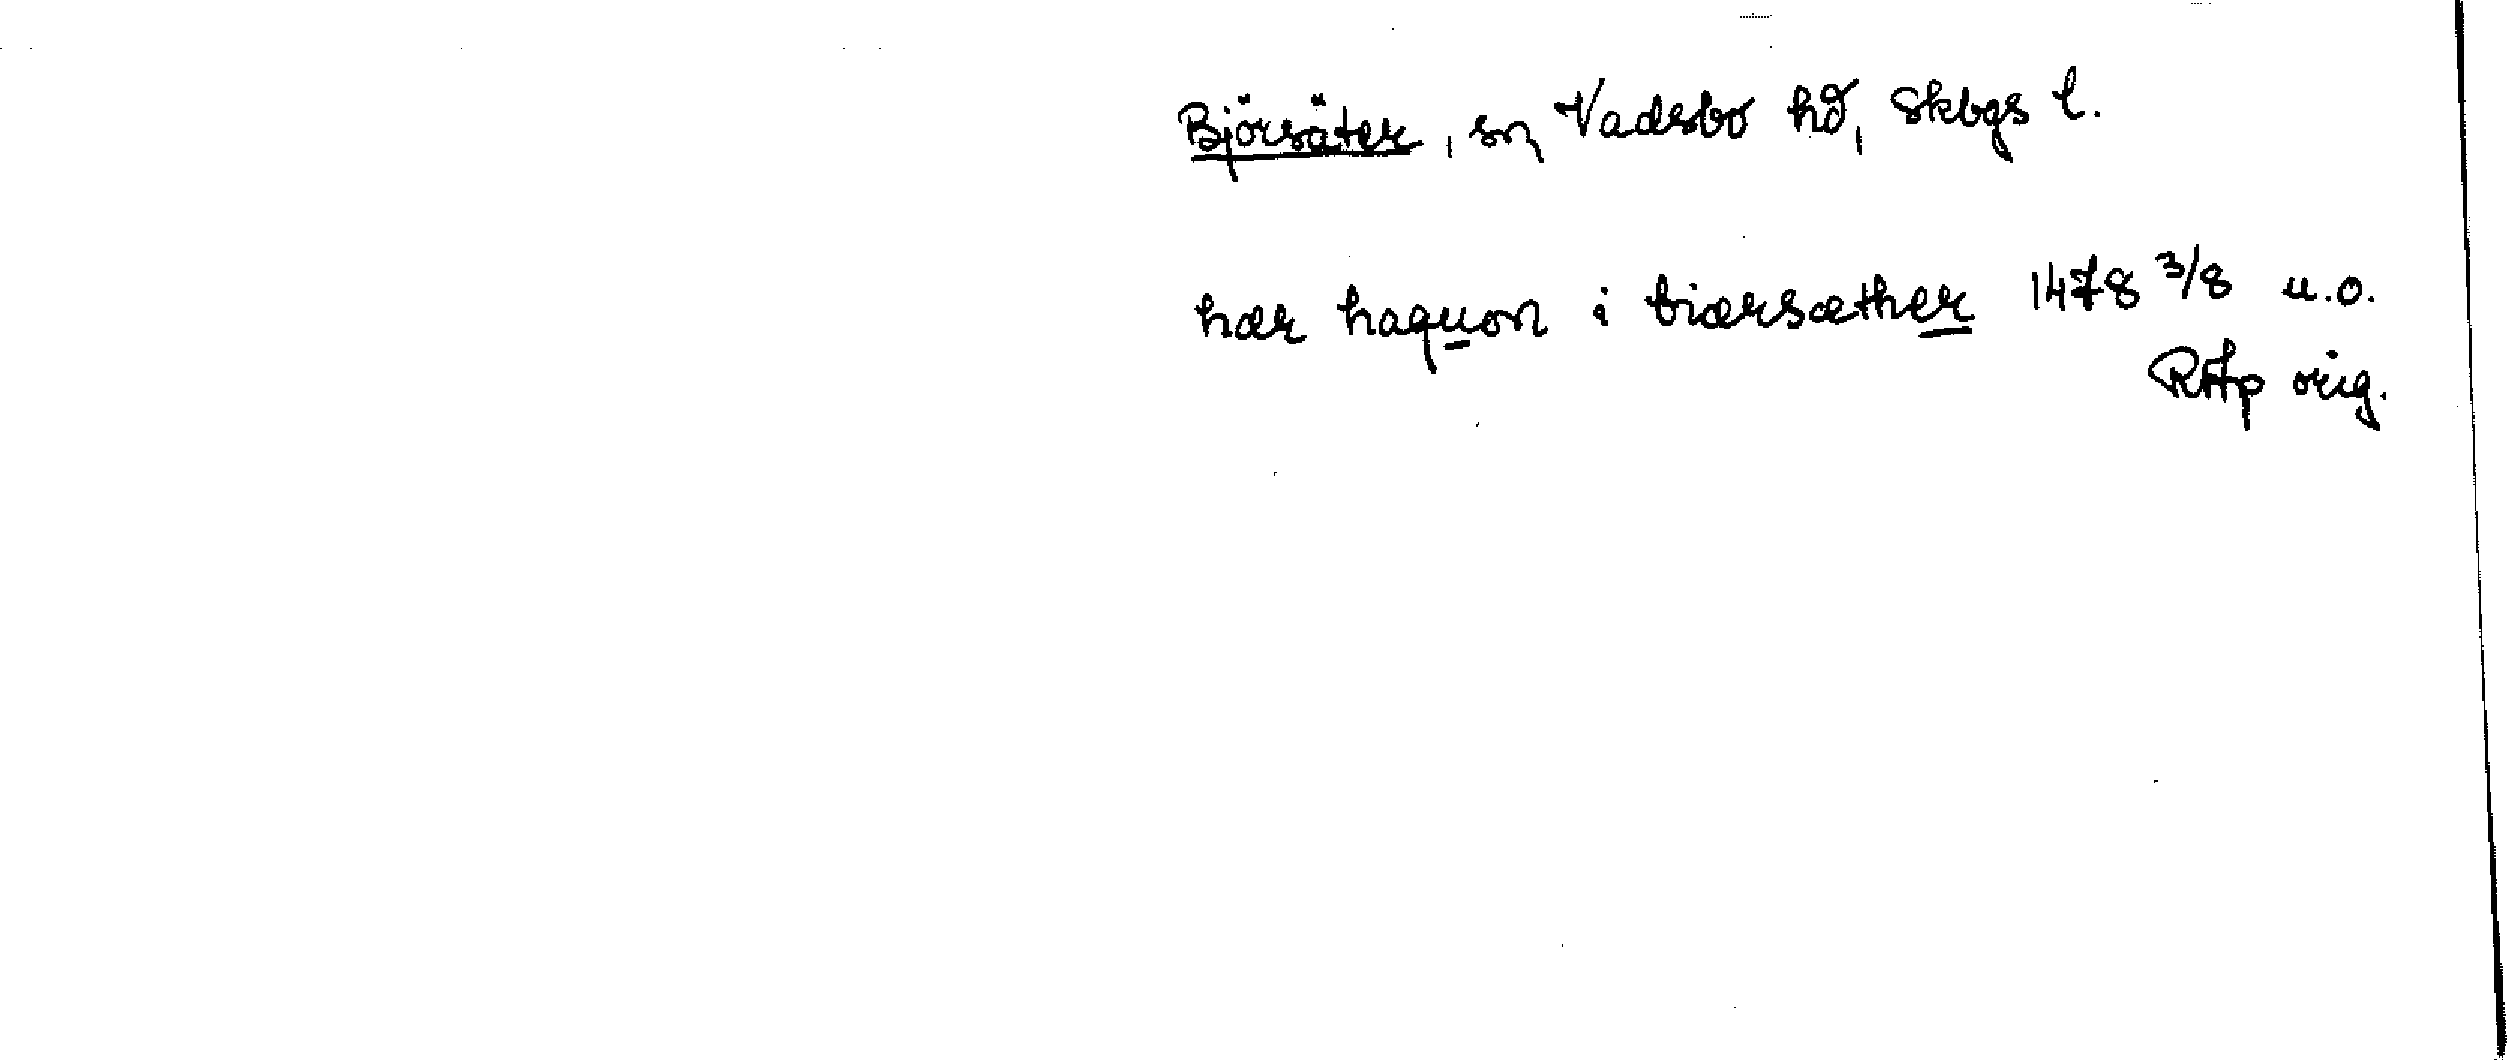 Björsäter, sn, Vadsbo hd, Skbgs l.
hær haquon i biærsæther 1478 3/8 u.o.
RAp orig.